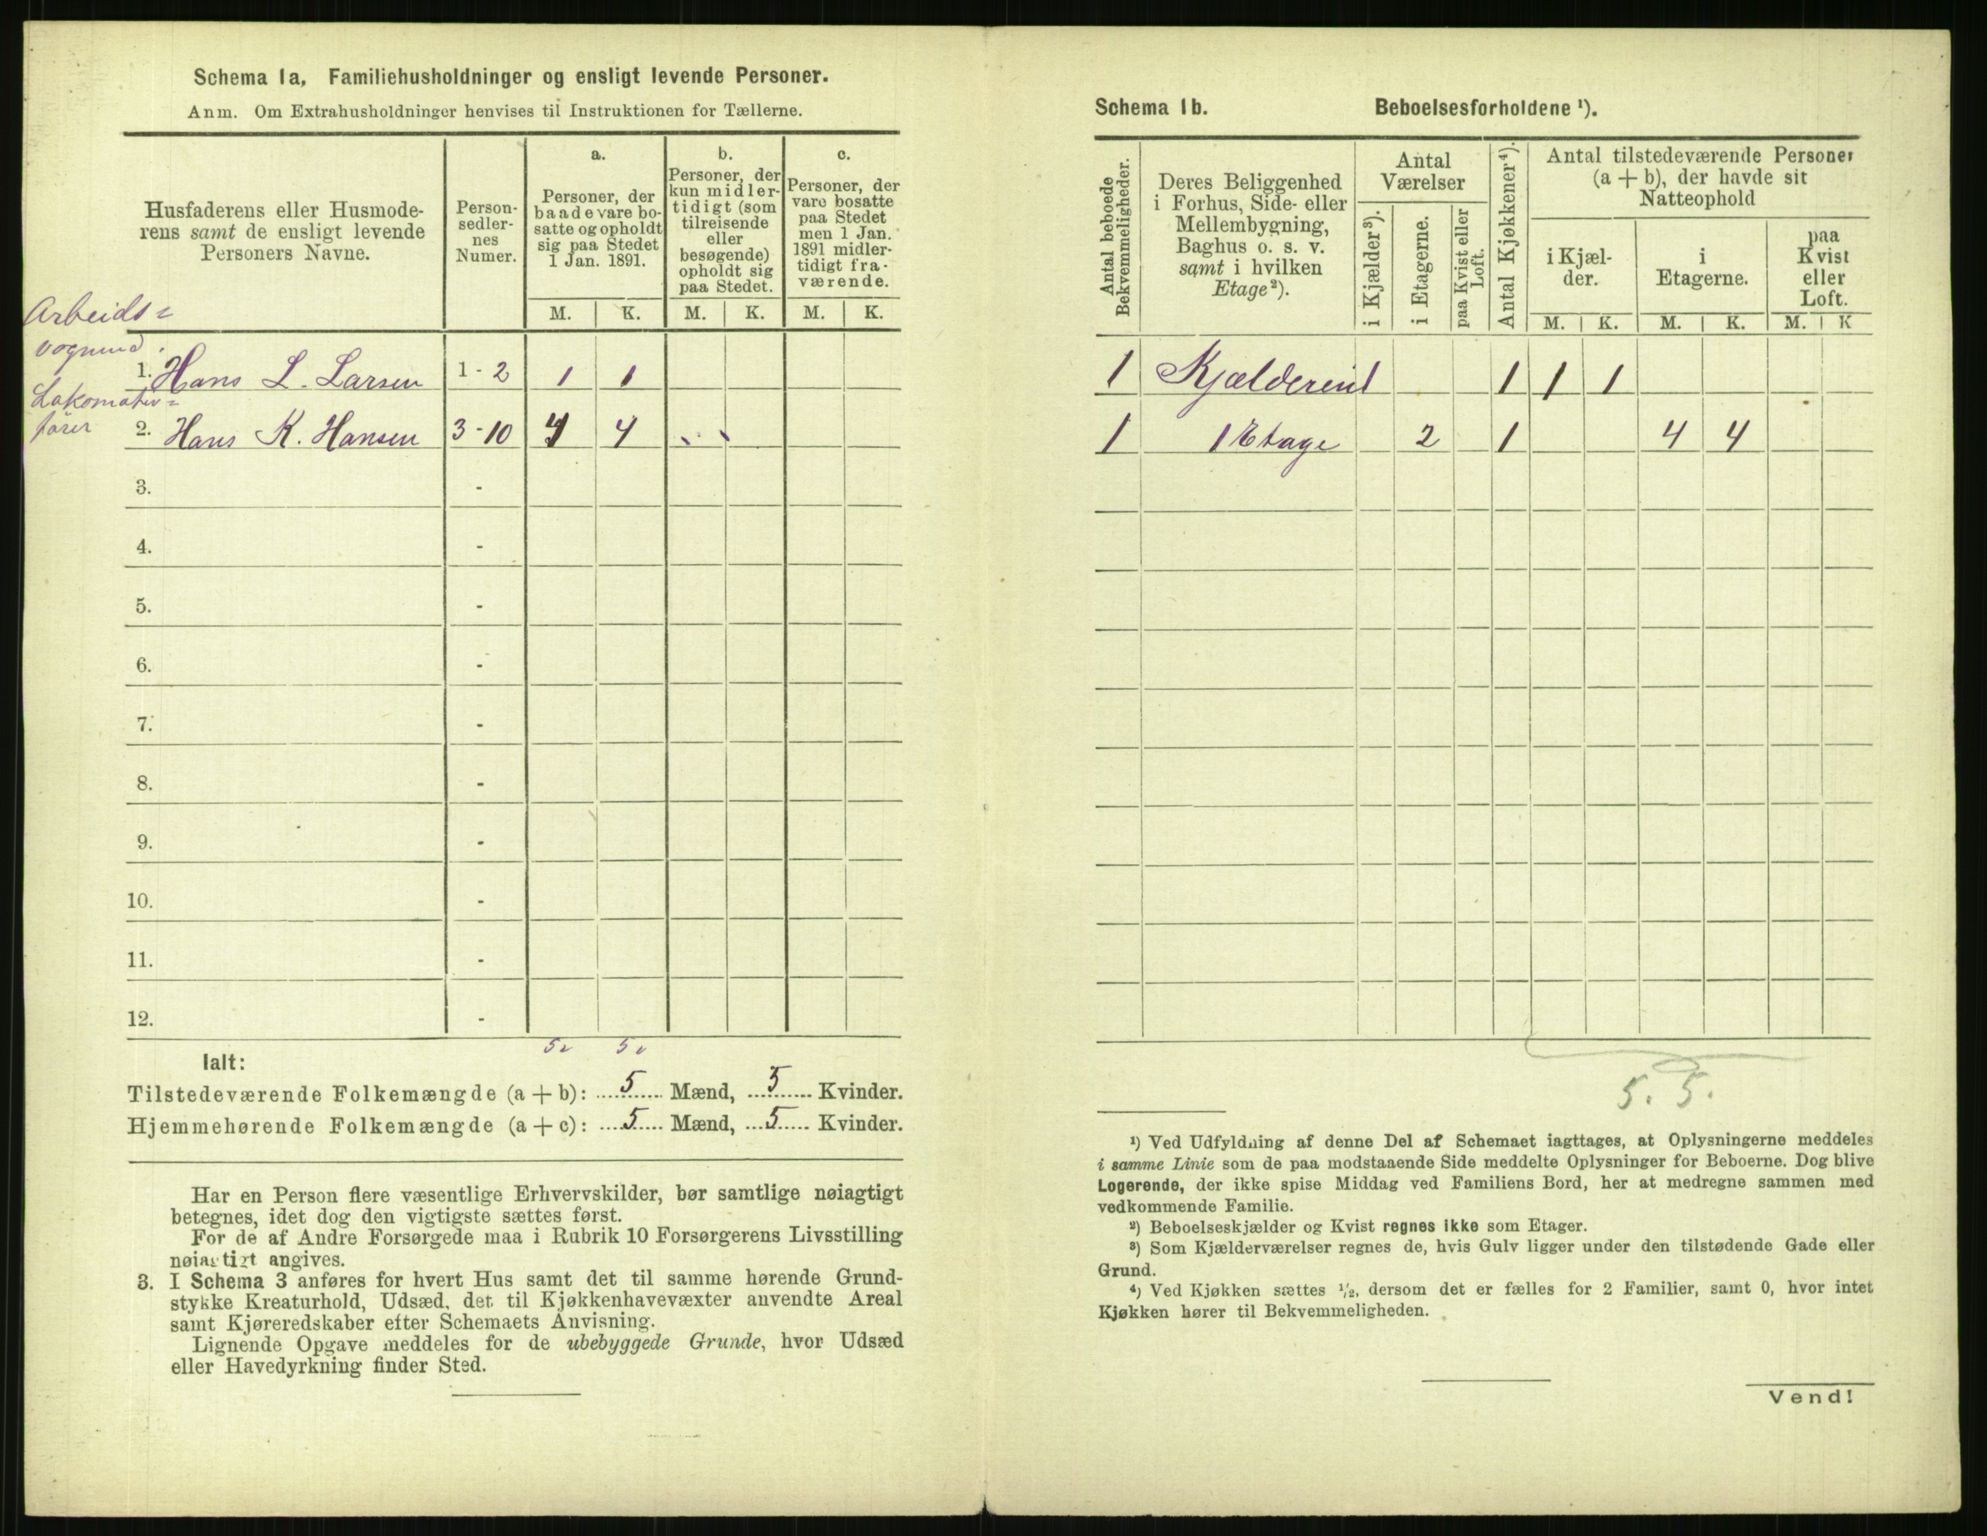 Schema 1a, Familiehusholdninger og ensligt levende Personer.
Anm. Om Extrahusholdninger henvises til Instruktionen for Tællerne.
Husfaderens eller Husmode-
rens samt de ensligt levende
Personers Navne.
Person-
sedler-
nes
Numer.
a.
Personer, der
baade vare bo-
satte og opholdt
sig paa Stedet
1 Jan. 1891.
b.
Personer, der
kun midler-
tidigt (som
tilreisende
eller
besøgende)
opholdt sig
paa Stedet.
c.
Personer, der
vare bosatte
paa Stedet
men 1 Jan.
1891 midler-
tidigt fra-
værende.
M. K. M. K. M. K.
Arbeids=
vognmd.
1. Hans L. Larsen 1-2 1 1
Lokomotiv=
fører
2. Hans K. Hansen 3-10 4 4
3. -
4. -
5. -
6. -
7. -
8. -
9. -
10. -
11. -
12. -
5 5
Ialt:
Tilstedeværende Folkemængde (a + b): 5 Mænd, 5 Kvinder.
Hjemmehørende Folkemængde (a + c): 5 Mænd, 5 Kvinder.
Har en Person flere væsentlige Erhvervskilder, bør samtlige nøiagtigt
betegnes, idet dog den vigtigste sættes først.
For de af Andre Forsørgede maa i Rubrik 10 Forsørgerens Livsstilling
nøiagtigt angives.
3. I Schema 3 anføres for hvert Hus samt det til samme hørende Grund-
stykke Kreaturhold, Udsæd, det til Kjøkkenhavevæxter anvendte Areal
samt Kjøreredskaber efter Schemaets Anvisning.
Lignende Opgave meddeles for de ubebyggede Grunde, hvor Udsæd
eller Havedyrkning finder Sted.
Schema 1b. Beboelsesforholdene ¹).
Antal beboede
Bekvemmeligheder.
Deres Beliggenhed
i Forhus, Side- eller
Mellembygning,
Baghus o. s. v.
samt i hvilken
Etage²).
Antal
Værelser
i Kjælder³).
i Etagerne.
paa Kvist eller
Loft.
Antal Kjøkkener⁴).
Antal tilstedeværende Personer
(a + b), der havde sit
Natteophold
i Kjæl-
der.
i
Etagerne.
paa
Kvist
eller
Loft.
M. K. M. K. M. K
1 Kjælderen 1 1 1 1
1 1 Etage 2 1 4 4
5. 5.
¹) Ved Udfyldning af denne Del af Schemaet iagttages, at Oplysningerne meddeles
i samme Linie som de paa modstaaende Side meddelte Oplysninger for Beboerne. Dog blive
Logerende, der ikke spise Middag ved Familiens Bord, her at medregne sammen med
vedkommende Familie.
²) Beboelseskjælder og Kvist regnes ikke som Etager.
³) Som Kjælderværelser regnes de, hvis Gulv ligger under den tilstødende Gade eller
Grund.
⁴) Ved Kjøkken sættes ½, dersom det er fælles for 2 Familier, samt 0, hvor intet
Kjøkken hører til Bekvemmeligheden.
Vend!